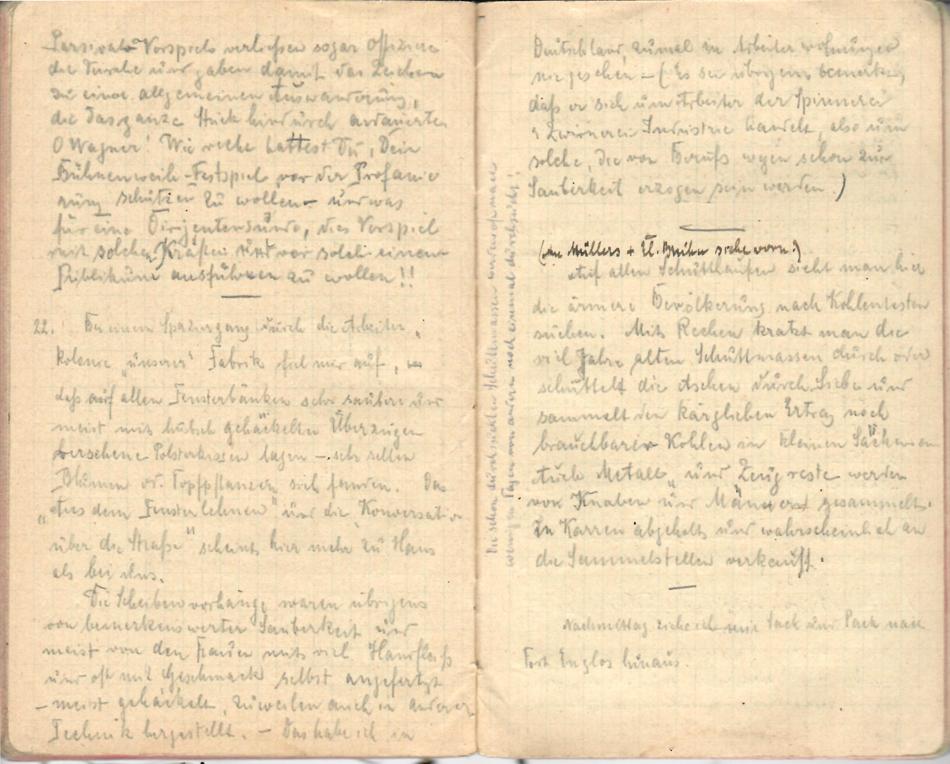 Parsival-Vorspiels verließen sogar Offiziere
die Tusche und gaben damit das Zeichen
zu einer allgemeinen Auswanderung,
die das ganze Stück hindurch andauerte.
O Wagner! Wie recht hattest Du, Dein
Bühnenweih-Festspiel vor der Profanie
rung schützen zu wollen – und was
für eine Dirigentensünde, dies Vorspiel
mit solchen Kräften und vor solch einem
Publikum ausführen zu wollen!!
22. Bei einem Spaziergang durch die Arbeiter
kolonie „unserer" Fabrik fiel mir auf,
daß auf allen Fensterbänken sehr saubere und
meist mit hübsch gehäckelten Überzügen
versehene Polsterkissen lagen – sehr selten
Blumen od. Topfpflanzen sich fanden. Das
„Aus dem Fenster lehnen" und die „Konversation
über die Straße" scheint hier mehr zu Haus
als bei uns.
Die Scheibenvorhänge waren übrigens
von bemerkenswerter Sauberkeit und
meist von den Frauen mit viel Handfleiß
und oft mit Geschmack selbst angefertigt
– meist gehäckelt, zuweilen auch in anderer
Technik hergestellt. – Das habe ich in
Deutschland, zumal in Arbeiterwohnungen
nie gesehen – (Es sei übrigens bemerkt,
daß es sich um Arbeiter der Spinnerei
& Zwirnerei Industrie handelt, also um
solche, die von Berufs wegen schon zur
Sauberkeit erzogen sein werden.)
Müllers + siehe vorn!)
Auf allen Schutthaufen sieht man hier
die ärmere Bevölkerung nach Kohlenresten
suchen. Mit Rechen kratzt man die
viel Jahre alten Schuttmassen durch oder
schüttelt die Aschen durch Siebe und
sammelt den kärglichen Ertrag noch
brauchbarer Kohlen in kleinen Säcken
Auch Metall und Zeugreste werden
von Knaben und Männern gesammelt.
In Karren abgeholt und wahrscheinlich an
die Sammelstellen verkauft.
Nachmittag ziehe ich mit Sack und Pack nach
Fort Englos hinaus.
Die schon durchsuchten Schuttmassen werden oft nach
wenigen Tagen von andern noch einmal durchsucht!